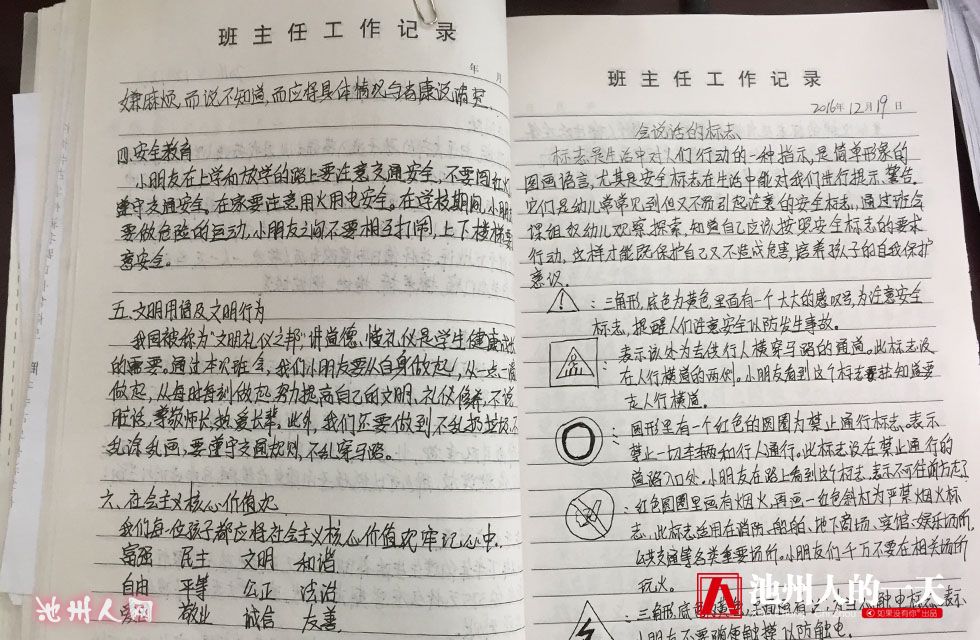 班主任工作记录
年 月
嫌麻烦,而说不知道,而应将具体情况与老师说清楚。
四.安全教育
小朋友在上学和放学的路上要注意交通安全,不要闯红
遵守交通安全。在家要注意用火用电安全。在学校期间,小朋
要做危险的运动,小朋友之间不要相互打闹,上下楼梯要
意安全。
五.文明用语及文明行为
我国被称为“文明礼仪之邦”讲道德、懂礼仪是学生健康成
的需要。通过本次班会,我们小朋友要从自身做起,从一点一滴
做起,从每时每刻做起努力提高自己的文明、礼仪修养,不说
脏话,尊敬师长,热爱长辈。此外,我们还要做到不乱扔垃圾,不
乱涂乱画,要遵守交通规则,不乱穿马路。
六、社会主义核心价值观
我们每一位孩子都应将社会主义核心价值观牢记心中。
富强 民主 文明 和谐
自由 平等 公正 法治
敬业 诚信 友善
池州人网
班主任工作记录
2016年12月19日
会说话的标志
标志是生活中对人们行动的一种指示,是简单形象的
图画语言,尤其是安全标志在生活中能对我们进行提示、警告。
它们是幼儿常常见到但又不易引起注意的安全标志,通过班会
课组织幼儿观察探索,知道自己应该按照安全标志的要求
行动,这样才能既保护自己又不造成危害,培养孩子的自我保护
意识。
:三角形,底色为黄色,里面有一个大大的感叹号,为注意安全
标志,提醒人们注意安全以防发生事故。
:表示该处为专供行人横穿马路的通道。此标志设
在人行横道的两侧。小朋友看到这个标志要知道要
走人行横道。
:圆形里有一个红色的圆圈为禁止通行标志。表示
禁止一切车辆和行人通行。此标志设在禁止通行的
道路入口处。小朋友在路上看到这个标志,表示不可往前方走了
:红色圆圈里画有烟火,再画一红色斜杠为严禁烟火标
志,此标志适用在消防、船舶、地下商场、宾馆、娱乐场所、
公共交通等各类重要场所。小朋友们千万不要在相关场所
玩火。
池州人的一天
如果没有你 出品
:三角形,底 标志,表示
小朋友不要随便触摸以防触电。